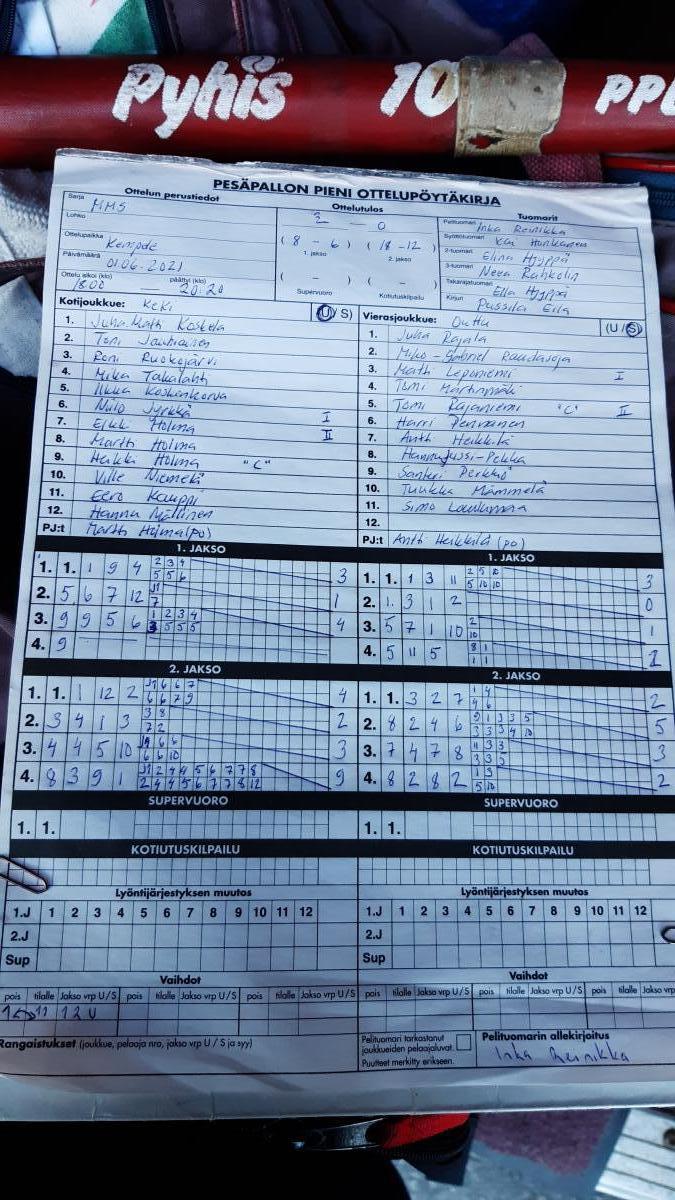 Pyhis 10 PPL
PESÄPALLON PIENI OTTELUPÖYTÄKIRJA
Ottelun perustiedot
Sarja MMS
Lohko
Ottelupaikka Kempele
Päivämäärä 01.06.2021
Ottelu alkoi (klo) päättyi (klo)
1800 — 20:20
Ottelutulos
2 - 0
( 8 - 6 ) ( 18 - 12 )
1. jakso 2. jakso
( - ) ( - )
Supervuoro Kotiutuskilpailu
Tuomarit
Pelituomari Inka Reinikka
Syöttötuomari
2-tuomari Elina Hyyppä
3-tuomari Neea Rahkolin
Takarajatuomari Ella Hyyppä
Kirjuri Pussila Eila
Kotijoukkue: KeKi (U/S)
1. Juha-Matti Koskela
2. Toni Jauhiainen
3. Roni Ruokojärvi
4. Mika Takalahti
5. Ilkka Koskenkorva
6. Niilo Jyrkkä
7. Erkki Holma I
8. Martti Holma II
9. Heikki Holma "C"
10. Ville Niemelä
11. Eero Kauppi
12. Hannu Mällinen
PJ:t Martti Holma (po)
Vierasjoukkue: Outtu (U/S)
1. Juha Rajala
2. Miko-Gabriel Raudasoja
3. Matti Leponiemi I
4. Tomi Martinmäki
5. Tomi Rajaniemi "C" II
6. Harri Pennanen
7. Antti Heikkilä
8. Hannu Jussi-Pekka
9. Santeri Perkkiö
10. Tuukka Mämmelä
11. Simo
12.
PJ:t Antti Heikkilä (po)
1. JAKSO
1. 1. 1 9 4 2 3 4 3
5 5 6
2. 5 6 7 12 J1 1
7
3. 9 9 5 6 1 2 3 4 4
3 5 5 5
4. 9
1. JAKSO
1. 1. 1 3 11 2 5 10 3
5 10 10
2. 1. 3 1 2 0
3. 5 7 1 10 2 1
10
4. 5 11 5 8 1 2
1 1
2. JAKSO
1. 1. 1 12 2 J1 6 6 7 4
6 6 7 9
2. 3 4 1 3 3 8 2
7 2
3. 4 4 5 10 J9 6 6 3
6 6 10
4. 8 3 9 1 J1 2 4 4 5 6 7 7 8 9
2 4 4 5 6 7 7 8 12
2. JAKSO
1. 1. 3 2 7 1 4 2
4 6
2. 8 2 4 6 9 1 3 3 5 5
3 3 3 4 10
3. 7 4 7 8 11 3 3 3
3 3 5
4. 8 2 8 2 1 9 2
5 10
SUPERVUORO
1. 1.
SUPERVUORO
1. 1.
KOTIUTUSKILPAILU
KOTIUTUSKILPAILU
Lyöntijärjestyksen muutos
1.J 1 2 3 4 5 6 7 8 9 10 11 12
2.J
Sup
Lyöntijärjestyksen muutos
1.J 1 2 3 4 5 6 7 8 9 10 11 12
2.J
Sup
Vaihdot
pois tilalle Jakso vrp U/S pois tilalle Jakso vrp U/S pois tilalle Jakso vrp U/S
1 ↔ 11 12U
Vaihdot
pois tilalle Jakso vrp U/S pois tilalle Jakso vrp U/S pois tilalle Jakso vrp
Rangaistukset (joukkue, pelaaja nro, jakso vrp U / S ja syy)
Pelituomari tarkastanut
joukkueiden pelaajaluvat.
Puutteet merkitty erikseen.
Pelituomarin allekirjoitus
Inka Reinikka